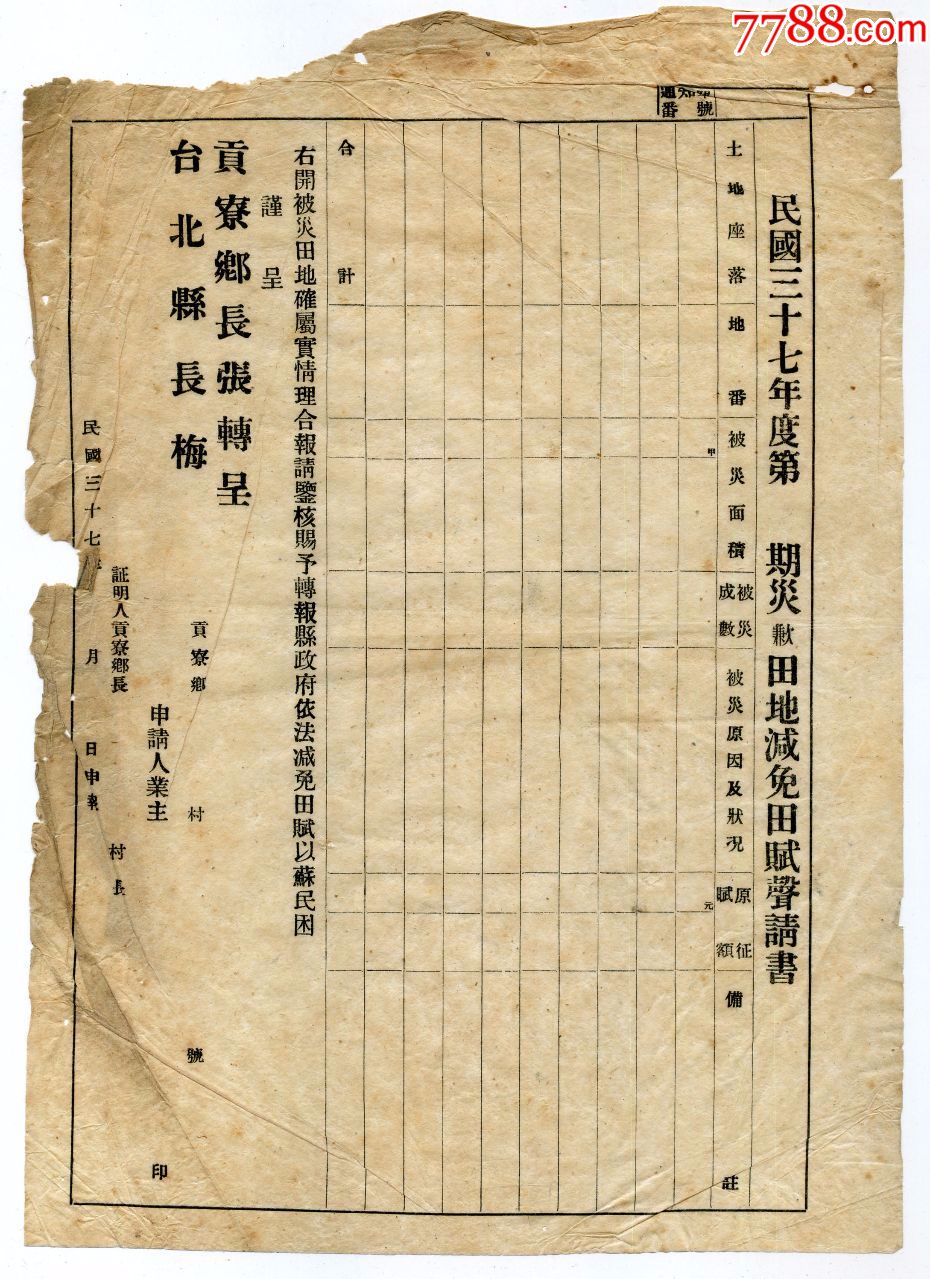 7788.com
通知
番號
民國三十七年度第　期災歉田地減免田賦聲請書
土地座落
地番
被災面積
被災成數
被災原因及狀況
原征賦額
備註
甲
元
合計
右開被災田地確屬實情理合報請鑒核賜予轉報縣政府依法減免田賦以蘇民困
謹呈
貢寮鄉長張轉呈
台北縣長梅
貢寮鄉　村　號
申請人業主　印
証明人貢寮鄉長　村長
民國三十七　月　日申報